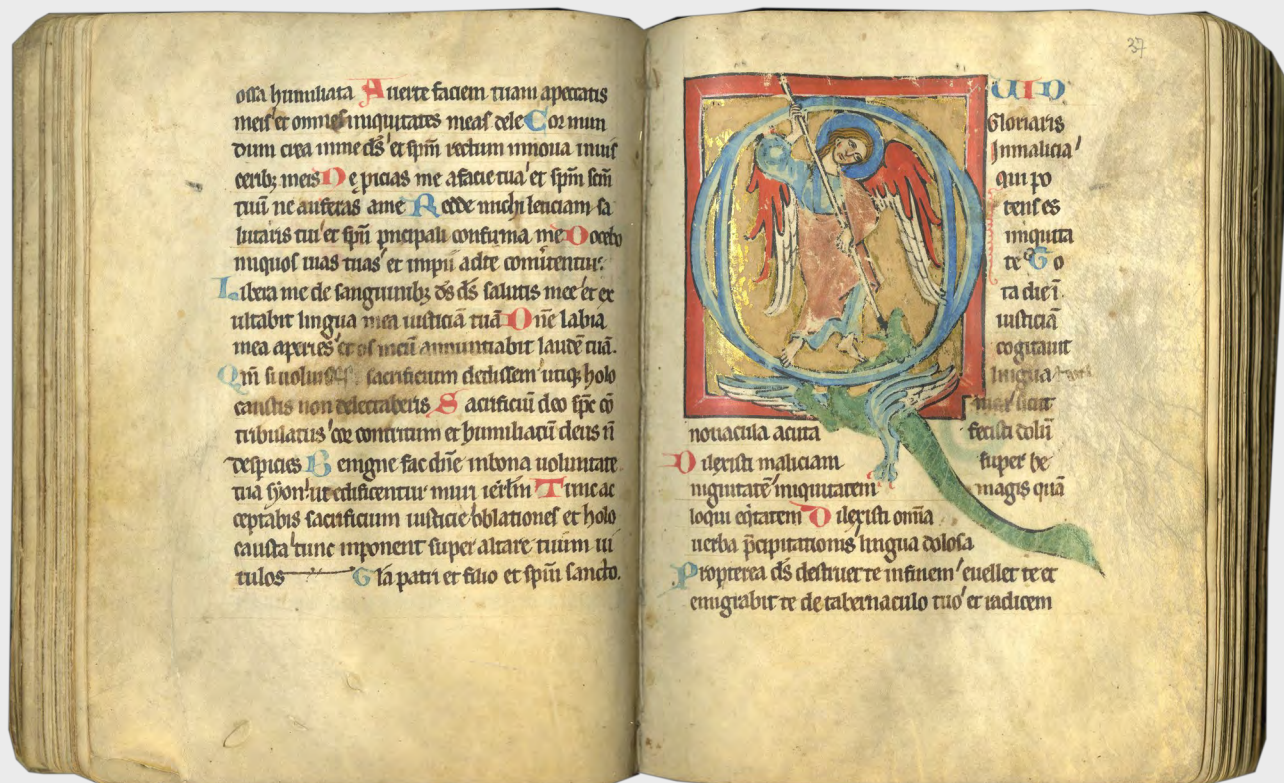 ossa humiliata Auerte faciem tuam apeccatis
meis' et omnes iniquitates meas dele Cor mun
dum crea inme ds' et spm rectum innoua inuis
ceribz meis Ne proicias me afacie tua' et spm scm
tuū ne auferas ame Redde michi leticiam sa
lutaris tui' et spū pncipali confirma me Docebo
iniquos uias tuas' et impii adte conuertentur:
Libera me de sanguinibz ds ds salutis mee' et ex
ultabit lingua mea iusticiā tuā Dn̄e labia
mea aperies' et os meū annuntiabit laudē tuā.
Qm̄ si uoluisses sacrificium dedissem' utiqz holo
caustis non delectaberis Sacrificiū deo sp̄c cō
tribulatus' cor contritum et humiliatū deus n̄
despicies Benigne fac dn̄e inbona uoluntate
tua syon' ut edificentur muri ierl̄m Tunc ac
ceptabis sacrificium iusticie' oblationes et holo
causta' tunc inponent super altare tuum ui
tulos Gl̄a patri et filio et spiū sancto.
37
QUID
Gloriaris
Inmalicia'
qui po
tens es
iniquita
te To
ta die ī
iusticiā
cogitauit
lingua
sicut
nouacula acuta fecisti dolū
Dilexisti maliciam super be
nignitatē' iniquitatem magis quā
loqui eq̄tatem Dilexisti omīa
uerba p̄cipitationis lingua dolosa
Propterea ds destruet te infinem' euellet te et
emigrabit te de tabernaculo tuo' et radicem